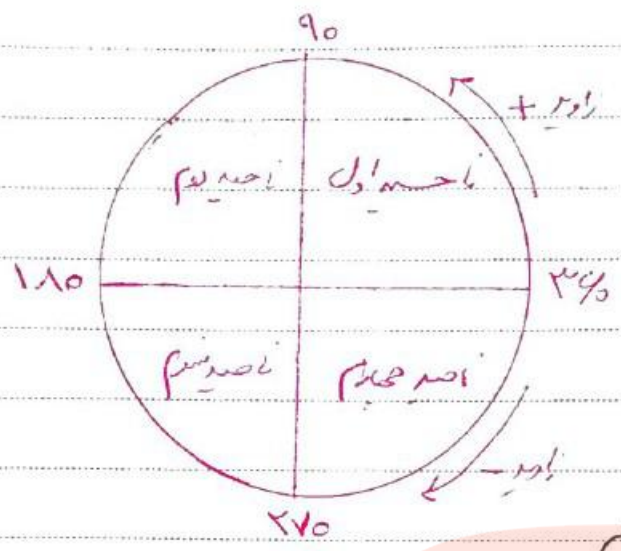 ۹۰
زاویه +
ناحیه دوم ناحیه اول
۱۸۰ ۳۶۰
ناحیه سوم ناحیه چهارم
زاویه -
۲۷۰